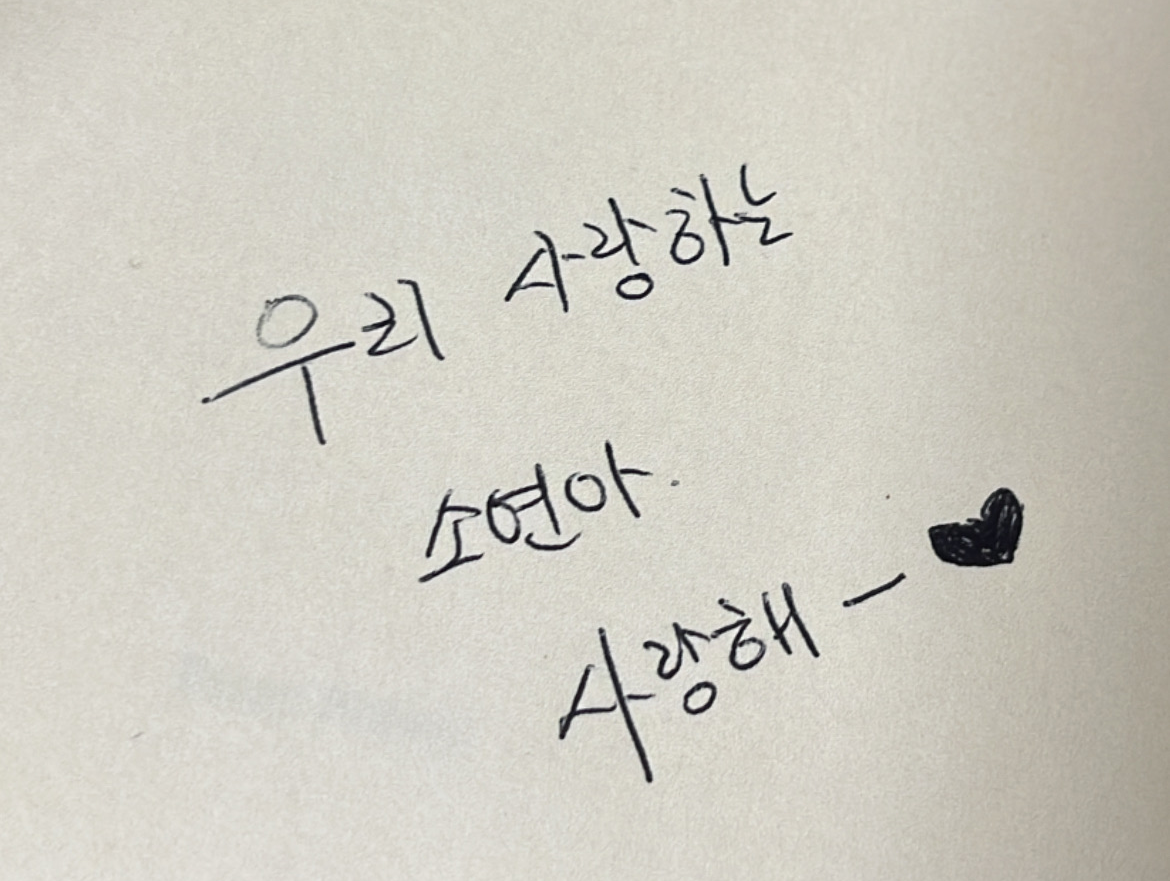 우리 사랑하는
소연아.
사랑해 - ♥